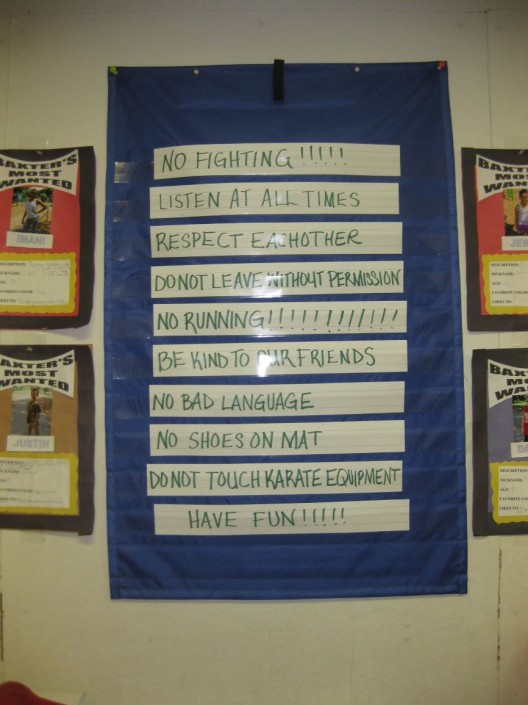 NO FIGHTING !!!!!
LISTEN AT ALL TIMES
RESPECT EACHOTHER
DO NOT LEAVE WITHOUT PERMISSION
NO RUNNING!!!!!!!!!!!!!
BE KIND TO OUR FRIENDS
NO BAD LANGUAGE
NO SHOES ON MAT
DO NOT TOUCH KARATE EQUIPMENT
HAVE FUN!!!!!
BAXTER'S
MOST
WANTED
IMANI
DESCRIPTION
NICKNAME:
AGE:
FAVORITE COLOR:
LIKES TO:
BAXTER'S
MOST
WANTED
JUSTIN
DESCRIPTION
NICKNAME
AGE:
FAVORITE COLOR
LIKES TO
DESCRIPTION:
NICKNAME:
AGE:
FAVORITE COLOR
LIKES TO:
DESCRIPTION:
NICKNAME
AGE:
FAVORITE
LIKES TO: